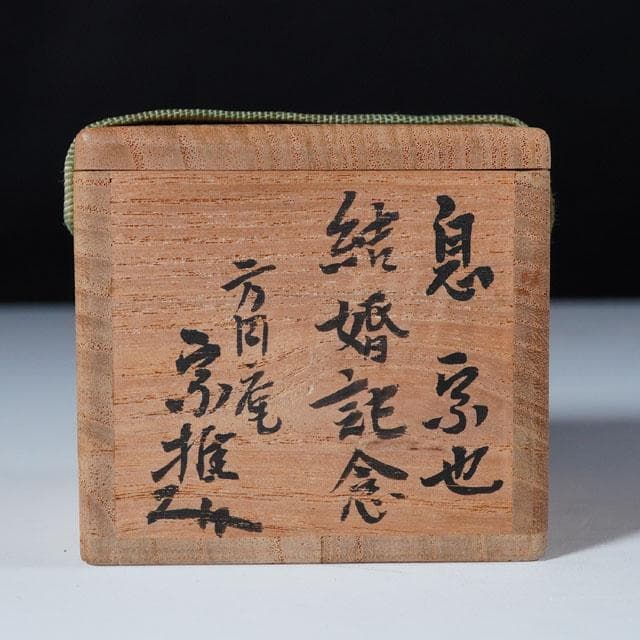 息 宗也
結婚記念
方円庵
宗推